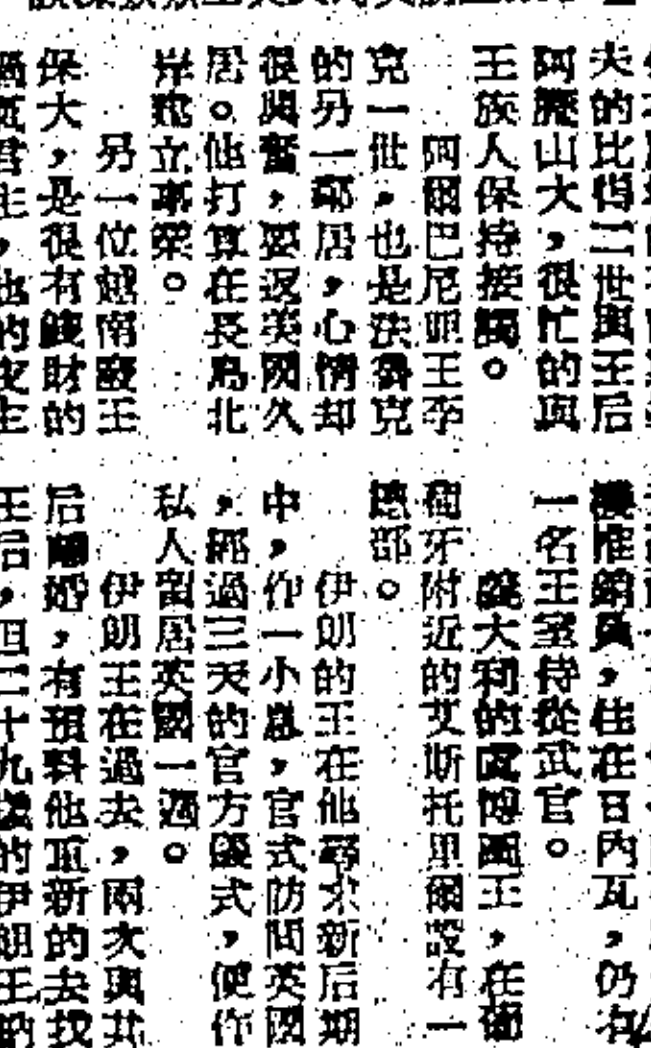 夫的比得二世與王后
阿歷山大，很忙的與
王族人保持接觸。
阿爾巴尼亞王李
克一世，也是法魯克
的另一鄰居，心情却
很興奮，要返美國久
居。他打算在長島北
岸建立事業。
另一位越南廢王
保大，是很有錢財的
君主，他的皮主
推銷員，住在日內瓦，仍有
一名王室侍從武官。
義大利的溫博圖王，在葡
萄牙附近的艾斯托里爾設有一
總部。
伊朗的王在他尋求新后期
中，作一小息，官式訪問英國
，經過三天的官方儀式，便作
私人留居英國一週。
伊朗王在過去，兩次與其
后離婚，有預料他重新的去找
王后，但二十九歲的伊朗王的